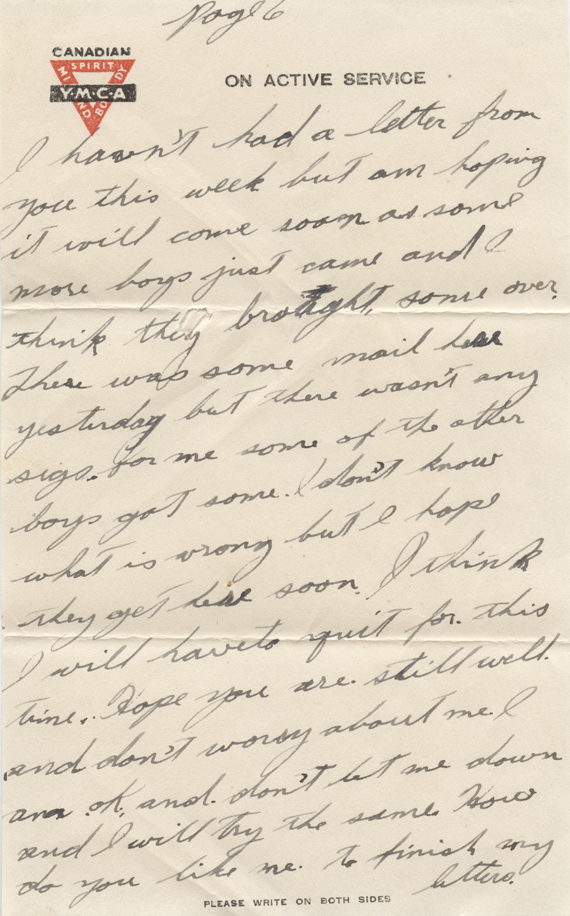 Page 6
CANADIAN
SPIRIT
MIND
BODY
Y·M·C·A
ON ACTIVE SERVICE
I havn't had a letter from
you this week but am hoping
it will come soom as some
more boys just came and I
think they brought, some over.
There was some mail here
yesterday but there wasn't any
sigs. for me some of the other
boys got some. I don't know
what is wrong but I hope
they get here soon. I think
I will haveto quit for. this
time. Hope you are. still well.
and don't worry about me I
am ok, and. don't let me down
and I will try the same. How
do you like me. to finish my
letters.
PLEASE WRITE ON BOTH SIDES